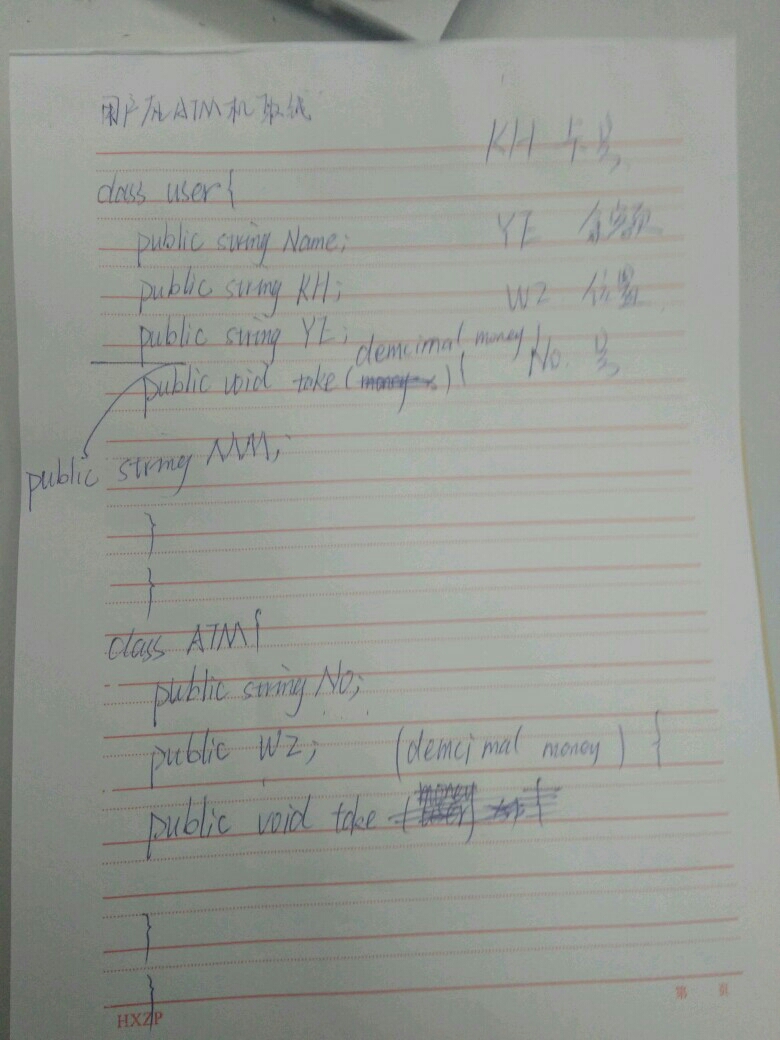 用户在ATM机取钱
KH 卡号
class user{
public string Name;
YE 余额
public string KH;
WZ 位置
public string YE;
demcimal money
No. 号
public void take( ){
public string MM;
}
}
class ATM{
public string No;
public WZ;
(demcimal money) {
public void take
}
}
HXZP
第 页